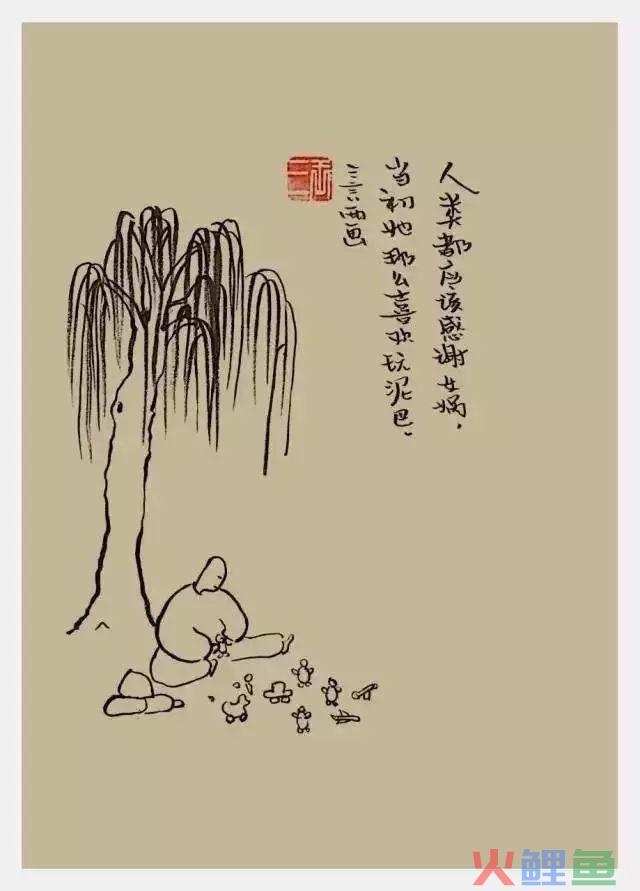 人类都应该感谢女娲，
当初她那么喜欢玩泥巴。
二言西画
火鲤鱼